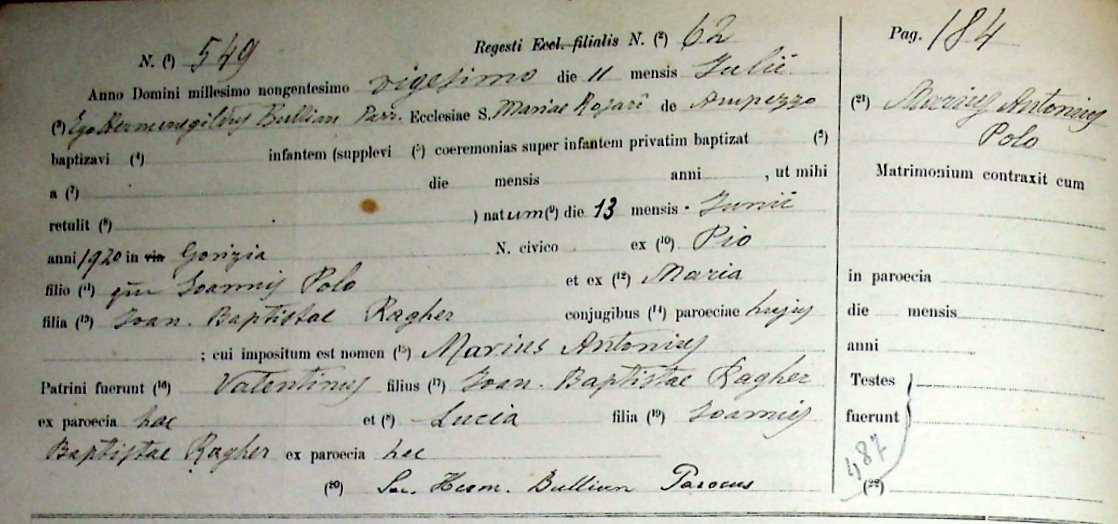 N. (1) 549 Regesti Eccl. filialis N. (2) 62
Anno Domini millesimo nongentesimo vigesimo die 11 mensis Julii
(3) Ego Hermenegildus Bullian Parr. Ecclesiae S. Mariae Rosarii de Ampezzo
baptizavi (4) infantem (supplevi (5) coeremonias super infantem privatim baptizat (6)
a (7) die mensis anni , ut mihi
retulit (8) ) natum (9) die 13 mensis Junii
anni 1920 in via Gorizia N. civico ex (10) Pio
filio (11) qm Joannis Polo et ex (12) Maria
filia (13) Joan. Baptistae Ragher conjugibus (14) paroeciae hujus
; cui impositum est nomen (15) Marius Antonius
Patrini fuerunt (16) Valentinus filius (17) Joan. Baptistae Ragher
ex paroecia hac et (18) Lucia filia (19) Joannis
Baptistae Ragher ex paroecia hac
(20) Sac. Herm. Bullian Parocus
Pag. 184
(21) Marius Antonius
Polo
Matrimonium contraxit cum
in paroecia
die mensis
anni
Testes
fuerunt
487
(22)